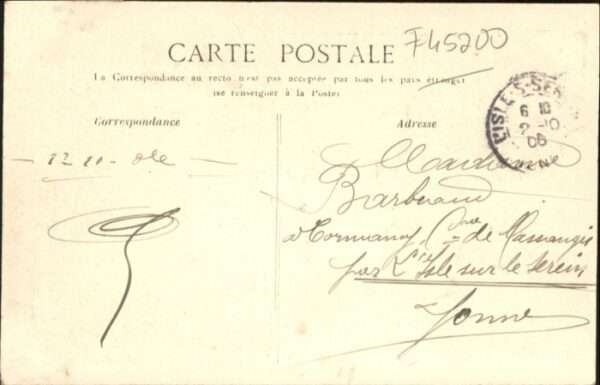 F45200
CARTE POSTALE
La Correspondance au recto n'est pas acceptée par tous les pays étranger
(se renseigner à la Poste)
Correspondance
Adresse
L'ISLE-S-SEREIN
6 10
2 -10
06
YONNE
Madame
Barberaud
à Cormany Cne de Massangis
par L'Isle sur le Serein
Yonne